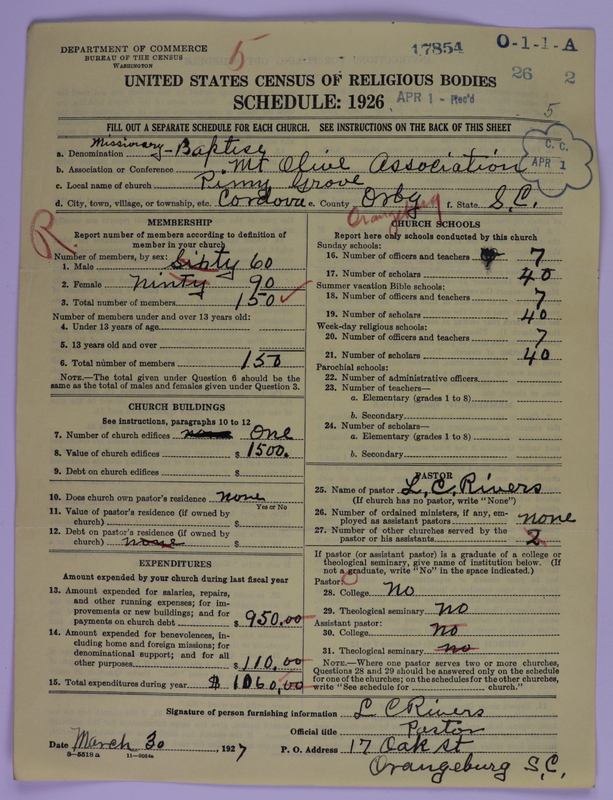 DEPARTMENT OF COMMERCE
BUREAU OF THE CENSUS
WASHINGTON
5
17854
O-1-1-A
26 2
UNITED STATES CENSUS OF RELIGIOUS BODIES
SCHEDULE: 1926
APR 1 - Rec'd
5
FILL OUT A SEPARATE SCHEDULE FOR EACH CHURCH. SEE INSTRUCTIONS ON THE BACK OF THIS SHEET
C. C.
APR 1
a. Denomination Missionary-Baptise
b. Association or Conference Mt Olive Association
c. Local name of church Pinny Grove
d. City, town, village, or township, etc. Cordova e. County Orbg f. State S.C.
Orangeburg
R
MEMBERSHIP
Report number of members according to definition of
member in your church
Number of members, by sex:
1. Male Sixty 60
2. Female Ninty 90
3. Total number of members 150
Number of members under and over 13 years old:
4. Under 13 years of age
5. 13 years old and over
6. Total number of members 150
NOTE.—The total given under Question 6 should be the
same as the total of males and females given under Question 3.
CHURCH BUILDINGS
See instructions, paragraphs 10 to 12
7. Number of church edifices none One
8. Value of church edifices $ 1500.
9. Debt on church edifices $
10. Does church own pastor's residence none
Yes or No
11. Value of pastor's residence (if owned by
church) $
12. Debt on pastor's residence (if owned by
church) none $
EXPENDITURES
Amount expended by your church during last fiscal year
13. Amount expended for salaries, repairs,
and other running expenses; for im-
provements or new buildings; and for
payments on church debt $ 950.00
14. Amount expended for benevolences, in-
cluding home and foreign missions; for
denominational support; and for all
other purposes $ 110.00
15. Total expenditures during year $ 1060,00
CHURCH SCHOOLS
Report here only schools conducted by this church
Sunday schools:
16. Number of officers and teachers 7
17. Number of scholars 40
Summer vacation Bible schools:
18. Number of officers and teachers 7
19. Number of scholars 40
Week-day religious schools:
20. Number of officers and teachers 7
21. Number of scholars 40
Parochial schools:
22. Number of administrative officers
23. Number of teachers—
a. Elementary (grades 1 to 8)
b. Secondary
24. Number of scholars—
a. Elementary (grades 1 to 8)
b. Secondary
PASTOR
25. Name of pastor L. C. Rivers
(If church has no pastor, write "None")
26. Number of ordained ministers, if any, em-
ployed as assistant pastors none
27. Number of other churches served by the
pastor or his assistants 2
If pastor (or assistant pastor) is a graduate of a college or
theological seminary, give name of institution below. (If
not a graduate, write "No" in the space indicated.)
Pastor: 0
28. College No
29. Theological seminary no
Assistant pastor:
30. College no
31. Theological seminary no
NOTE.—Where one pastor serves two or more churches,
Questions 28 and 29 should be answered only on the schedule
for one of the churches; on the schedules for the other churches,
write "See schedule for church."
Signature of person furnishing information L C Rivers
Official title Pastor
Date March 30, 1927 P. O. Address 17 Oak St
8-5518a 11-9084a
Orangeburg S.C.